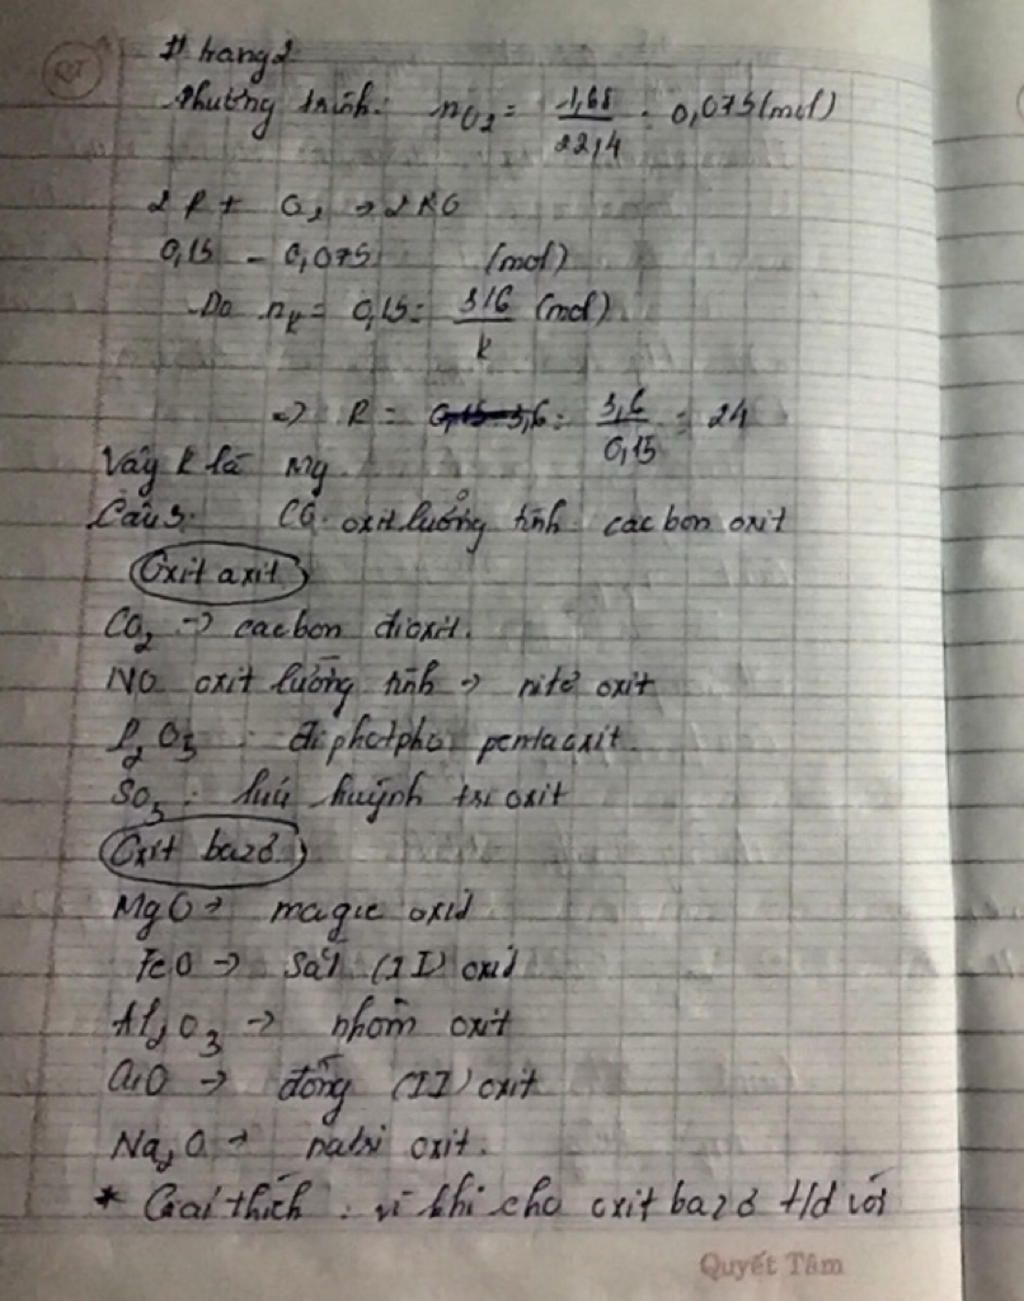 # trang 2
Phương trình: nO₂ = 1,68/22,4 = 0,075 (mol)
2R + O₂ → 2RO
0,15 - 0,075 (mol)
Do nR = 0,15 = 3,6/R (mol)
=> R = 3,6/0,15 = 24
Vậy R là Mg
Câu 3: CO: oxit lưỡng tính cacbon oxit
Oxit axit
CO₂ -> cacbon đioxit.
NO oxit lưỡng tính -> nitơ oxit
P₂O₅ : điphotpho pentaoxit.
SO₃ : lưu huỳnh tri oxit
Oxit bazơ
MgO -> magie oxit
FeO -> Sắt (II) oxit
Al₂O₃ -> nhôm oxit
CuO -> đồng (II) oxit
Na₂O -> natri oxit.
* Giải thích : vì khi cho oxit bazơ t/d với
Quyết Tâm